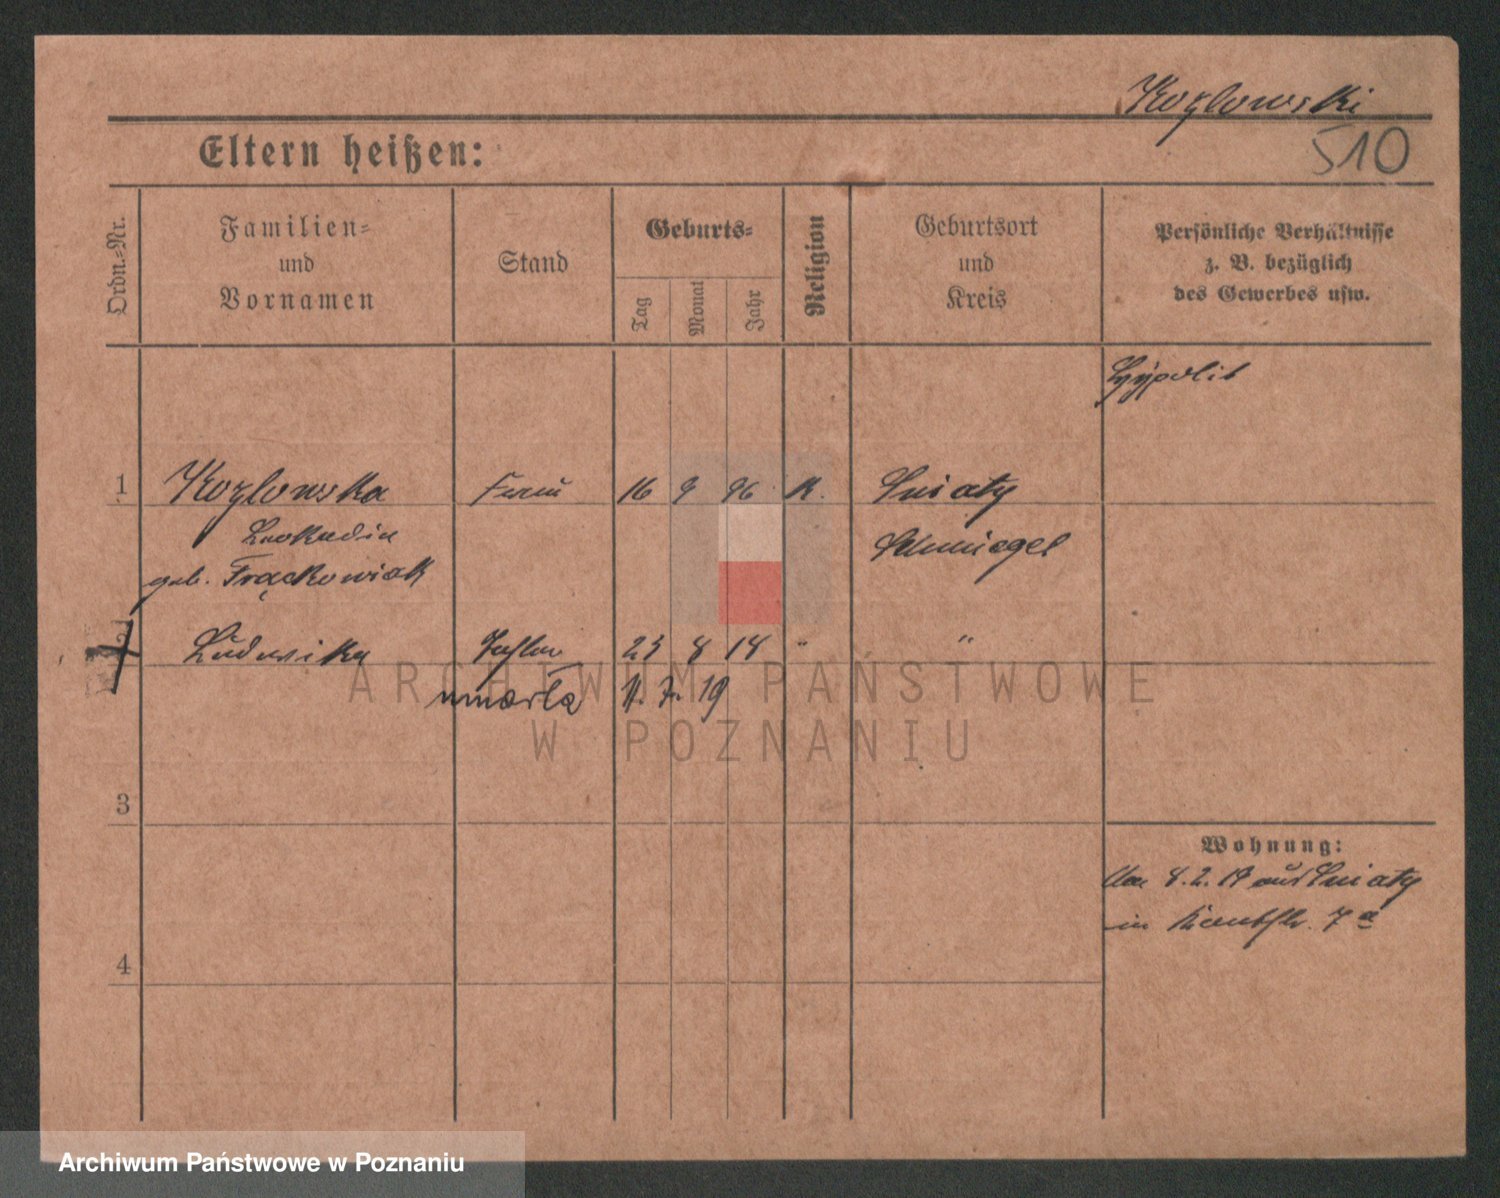 Kozlowski
510
Eltern heißen:
Ordn.=Nr.
Familien=
und
Vornamen
Stand
Geburts=
Tag
Monat
Jahr
Religion
Geburtsort
und
Kreis
Persönliche Verhältnisse
z. B. bezüglich
des Gewerbes usw.
Hypolit
1 Kozlowska Frau 16 9 96 K. Sniaty
Leokadia Schmiegel
geb. Frąckowiak
2 Ludwika Tochter 23 8 18 " "
umarła 11. 7. 19
3
4
Wohnung:
8.2.19 aus Sniaty
in 7a
ARCHIWUM PAŃSTWOWE
W POZNANIU
Archiwum Państwowe w Poznaniu